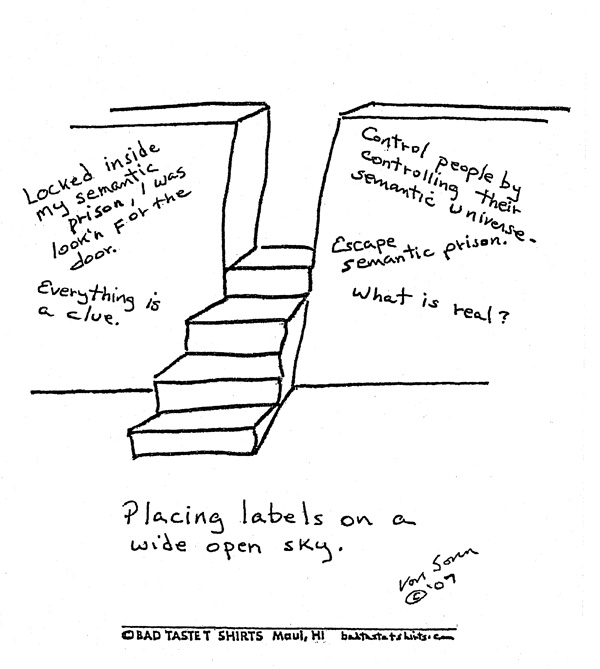 Locked inside
my semantic
prison, I was
look'n For the
door.
Everything is
a clue.
Control people by
controlling their
semantic universe.
Escape
semantic prison.
What is real?
Placing labels on a
wide open sky.
von Sorin
©'09
©BAD TASTE T SHIRTS Maui, HI badtastetshirts.com